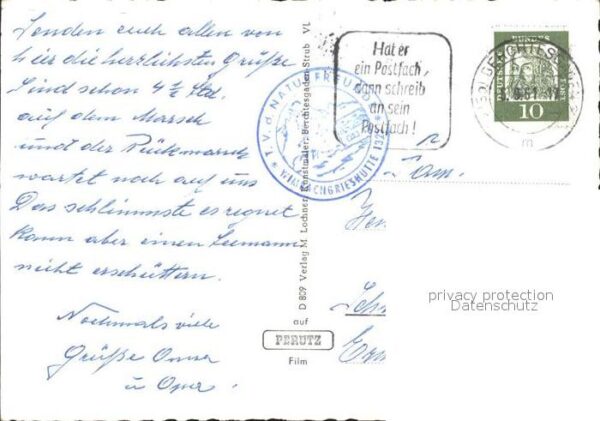 Senden euch allen von
hier die herzlichsten Grüße
Sind schon 4 ½ Std.
auf dem Marsch
und der Rückmarsch
wartet noch auf uns
Das schlimmste es regnet
kann aber einen Seemann
nicht erschüttern.
Nochmals viele
Grüße Oma
u Opa
D 809 Verlag M. Lochner, Kunstmaler, Berchtesgaden-Strub VI
auf
PERUTZ
Film
T.V.d. NATURFREUNDE
WIMBACHGRIESHÜTTE 1327
Hat er
ein Postfach,
dann schreib
an sein
Postfach!
DEUTSCHE BUNDESPOST
10
Fam.
privacy protection
Datenschutz